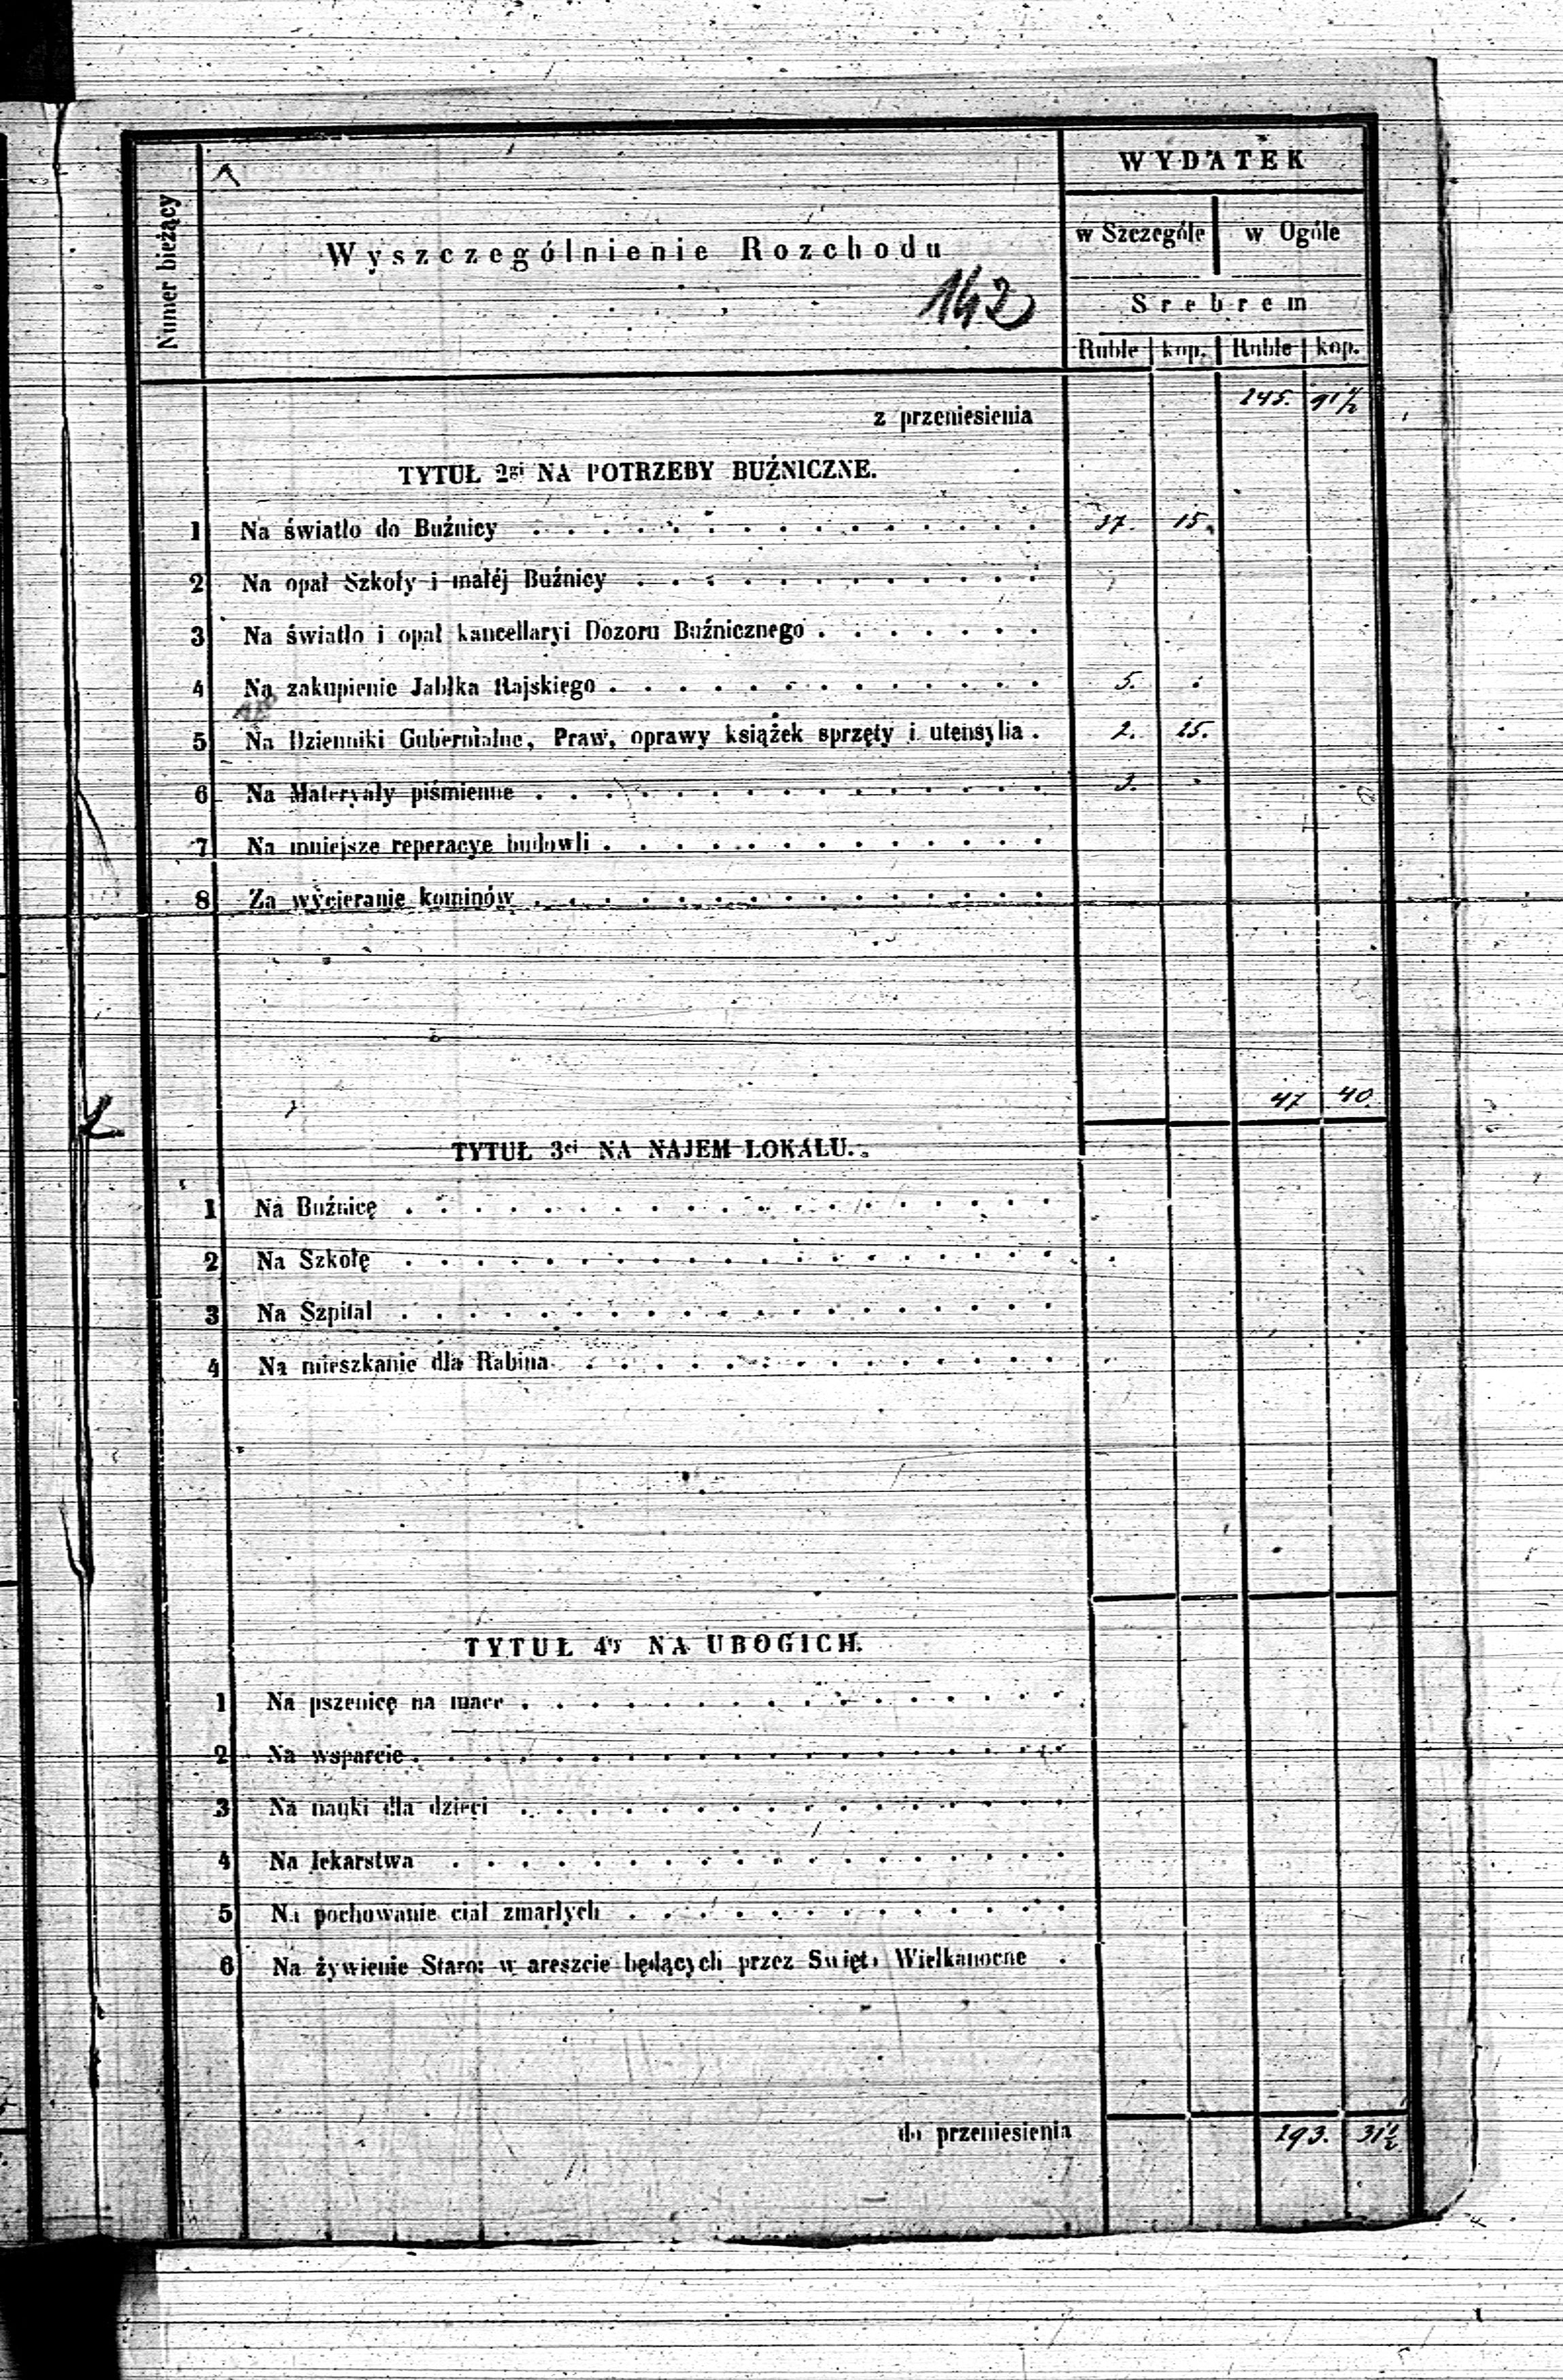 Numer bieżący
Wyszczególnienie Rozchodu
142
WYDATEK
w Szczególe w Ogóle
Srebrem
Ruble kop. Ruble kop.
z przeniesienia 245. 91½
TYTUŁ 2gi NA POTRZEBY BUŹNICZNE.
1 Na światło do Buźnicy . . . . 37. 15.
2 Na opał Szkoły i małéj Buźnicy . . . .
3 Na światło i opał kancellaryi Dozoru Buźnicznego . . . .
4 Na zakupienie Jabłka Rajskiego . . . . 5. .
5 Na Dzienniki Gubernialne, Praw, oprawy książek sprzęty i utensylia . 2. 25.
6 Na Materyały piśmienne . . . . 3. .
7 Na mniejsze reperacye budowli . . . .
8 Za wycieranie kominów . . . .
47 40.
TYTUŁ 3ci NA NAJEM LOKALU.
1 Na Buźnicę . . . .
2 Na Szkołę . . . .
3 Na Szpital . . . .
4 Na mieszkanie dla Rabina . . . .
TYTUŁ 4ty NA UBOGICH.
1 Na pszenicę na mace . . . .
2 Na wsparcie . . . .
3 Na nauki dla dzieci . . . .
4 Na lekarstwa . . . .
5 Na pochowanie ciał zmarłych . . . .
6 Na żywienie Staro: w areszcie będących przez Święta Wielkanocne .
do przeniesienia 293. 31½